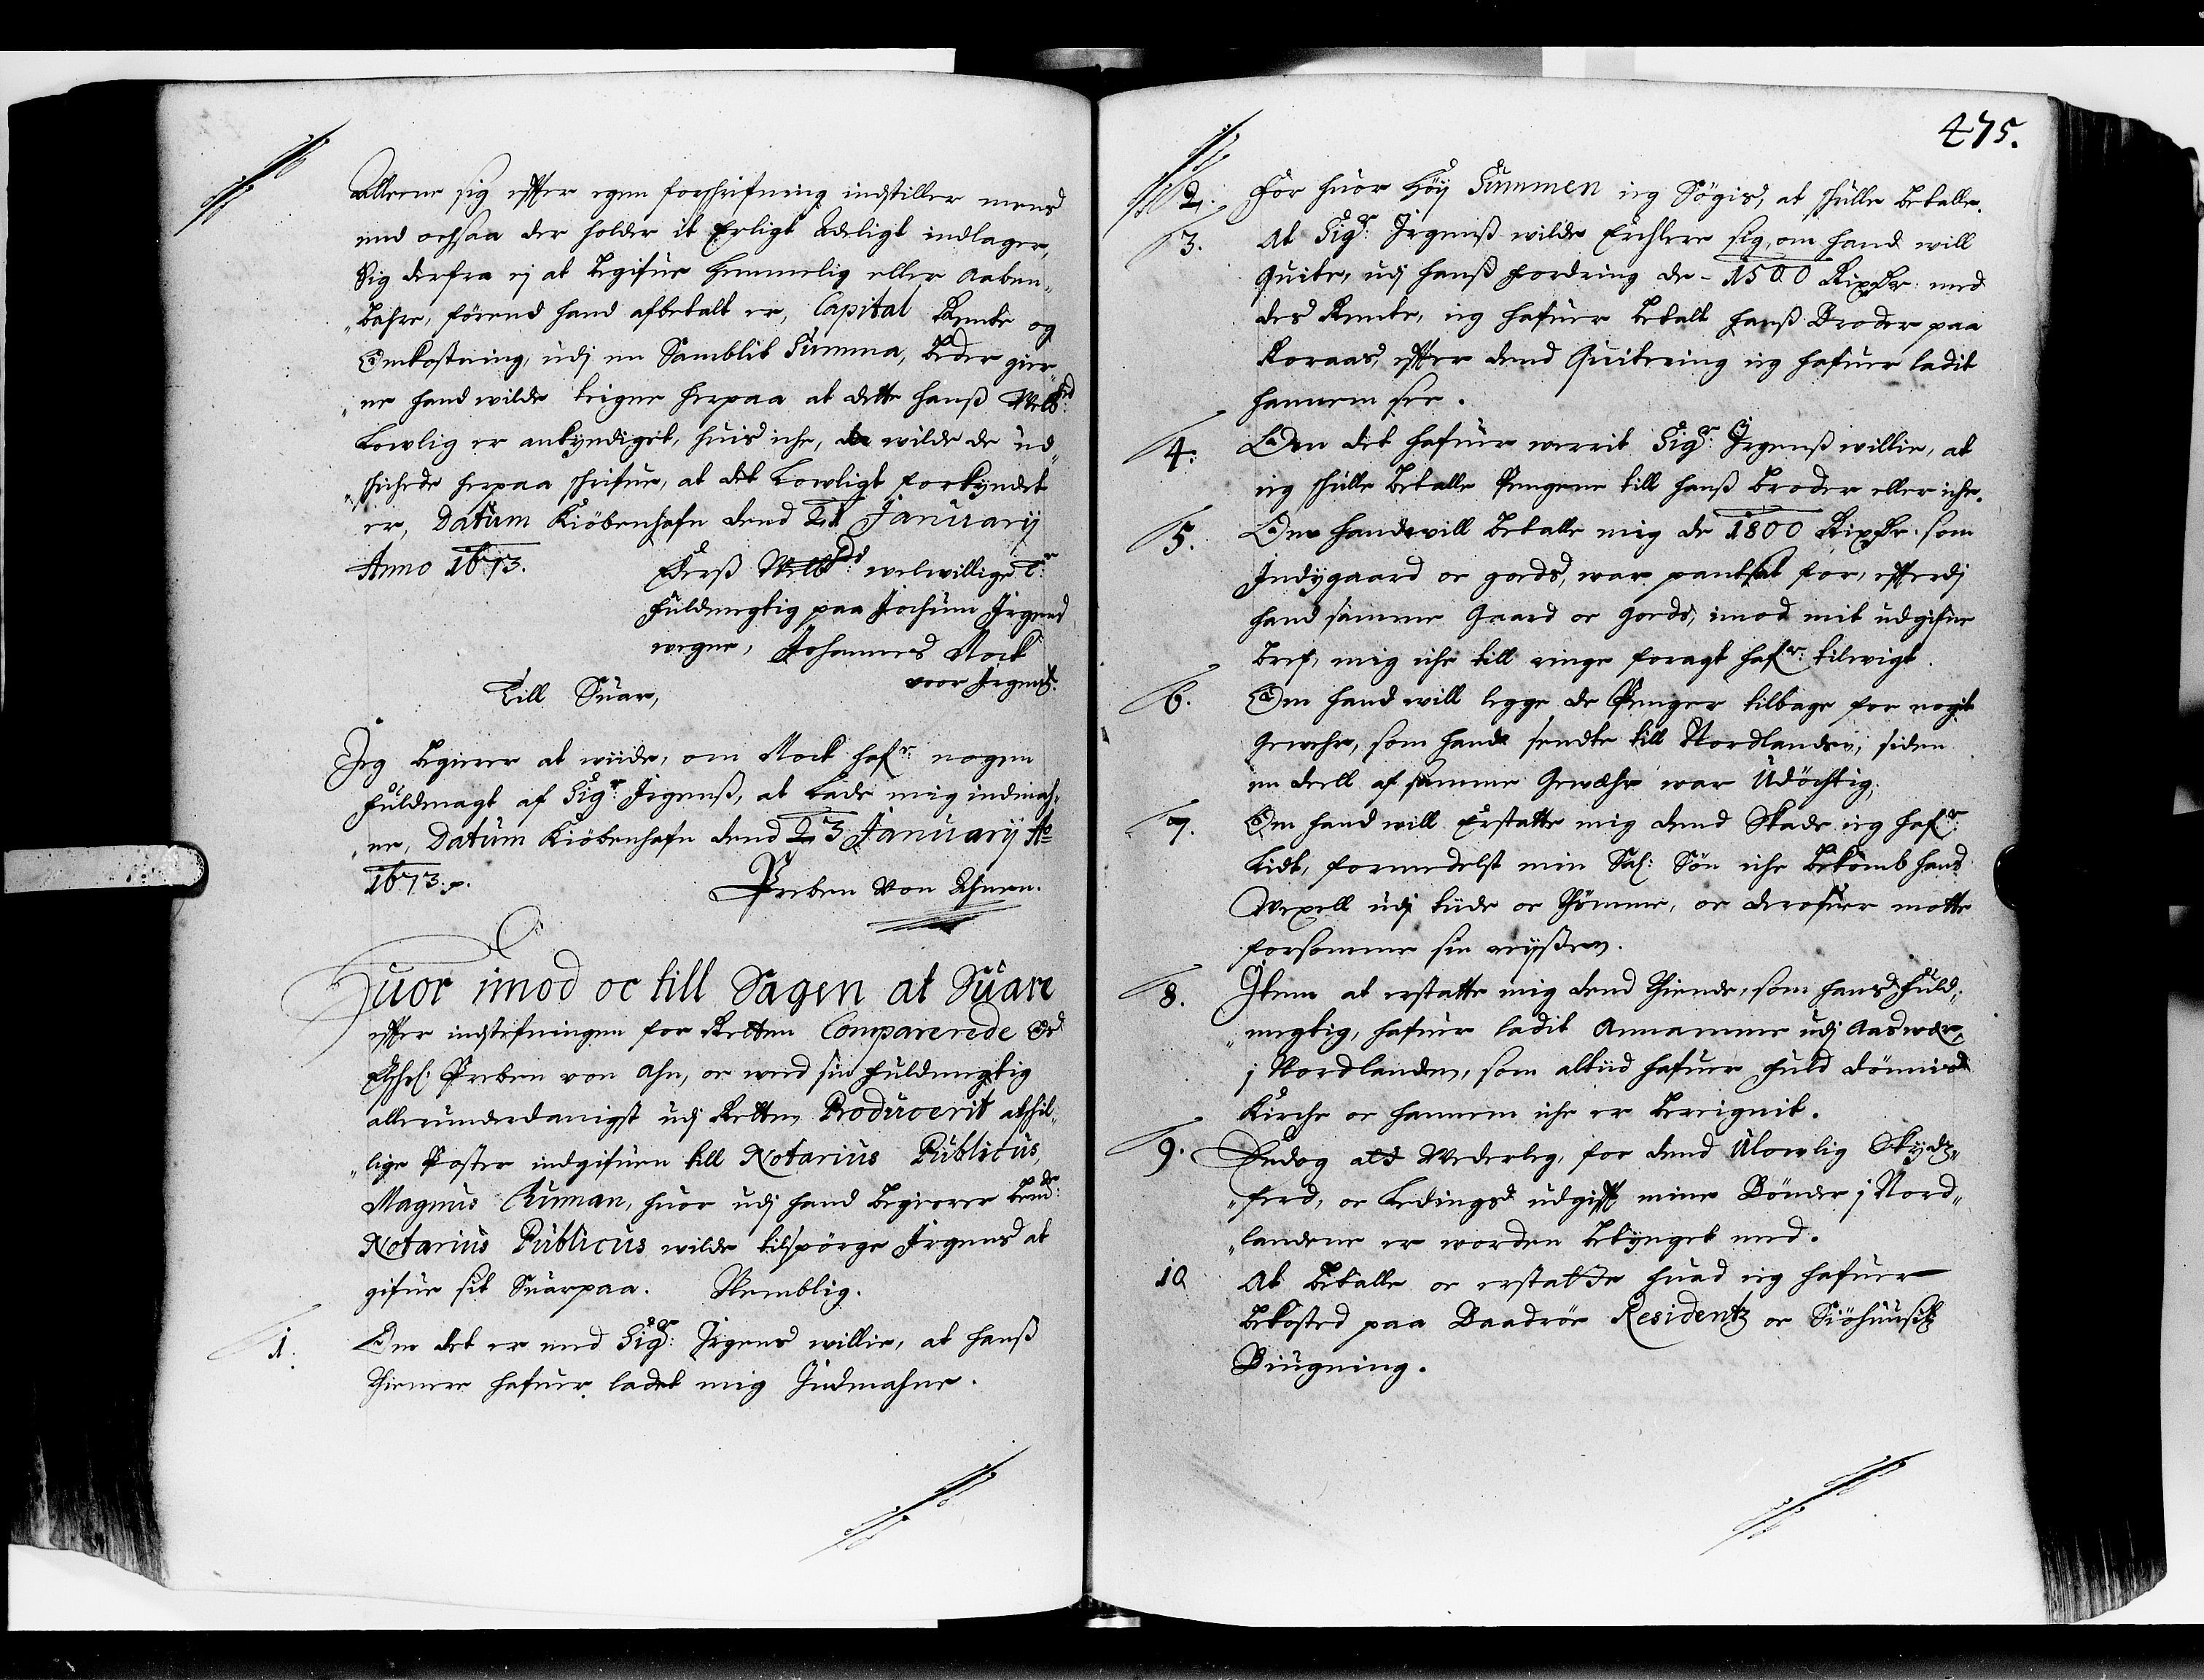 Alleene sig effter egen forschrifning indstiller mens
end ochsaa der holder it Erligt Adeligt indlager,
Sig derfra ej at begifue hemmelig eller aaben„
„bahre, förend hand afbetalt er, Capital Rente og
Omkostning, udj en Samblit Summa, beder gier„
„ne hand wilde teigne herpaa at dette hanß Welbhd
Lowlig er ankyndiget, huis iche, da wilde de ud„
„schichede herpaa schrifue, at det Lowligt forkyndet
er, Datum Kiöbenhafn dend 21 Januarij
Anno 1673.
Ederß Welbhd: welwillige T:r
fuldmegtig paa Jochum Irgens
wegne, Johannes Mock
voor Irgens.
Till Suar,
Jeg begierer at wiide, om Mock hafr: nogen
fuldmagt af Sigr: Irgenß, at lade mig indmah„
„ne, Datum Kiöbenhafn dend 23 Januarij Ao
1673.
Preben von Ahnen.
Huor imod oc till Sagen at Suare
effter indstefningen for Retten Comparerede
Preben von Ahn, oc wed sin fuldmegtig
allerunderdanigst udj Retten Producerit atskil„
„lige Poster indgifuen till Notarius Publicus,
Magnus Ruman, huor udj hand begierer bemdte:
Notarius Publicus wilde tilspörge Irgens at
gifue sit Suar paa. Nemblig.
1. Om det er med Sigr: Irgens willie, at hanß
thienere hafuer ladet mig Indmahne.
475.
2. For huor höy Summen ieg Söges, at schulle betalle.
3. At Sigr: Irgenß wilde Erchlere sig, om hand will
Quitte, udj hanß fordring de - 1500 Rixdr: med
des Rente, ieg hafuer betalt hanß Broder paa
Roraas, effter dend Quitering ieg hafuer ladit
hannem see.
4: Om det hafuer werrit Sigr: Irgenß willie, at
ieg schulle betalle Pengene till hanß broder eller iche.
5. Om hand will betalle mig de 1800 Rixdr. som
Indygaard oc gods, war pantsat for, effterdj
hand samme Gaard oc gods, imod mit udgifne
bref, mig iche till ringe foragt hafr: tilwigt.
6. Om hand will legge de Penger tilbage for nogit
Gewehr, som hand sendte till Nordlanden, siden
en deell af samme Gewehr war Udöchtig,
7. Om hand will Erstatte mig dend Skade ieg hafr:
Lidt, formedelst min Sal: Sön iche bekomb hans
Wexell udj tiide oc thimme, oc derofuer motte
forsomme sin reyße.
8. Item at erstatte mig dend thiende, som hans fuld„
„megtig, hafuer ladit Annamme udj Aaswer,
j Nordlanden, som altiid hafuer fuld dönnis
Kirche oc hannem iche er bereignit.
9. Endog ald Wederleg, for dend Ulowlig Skyds„
„ferd, oc Ledings udgifft mine Bönder j Nord„
„landene er worden betynget med.
10 At betalle oc erstatte huad ieg hafuer
bekosted paa Baadröe Residentz oc Siöhuusitz
Biugning.